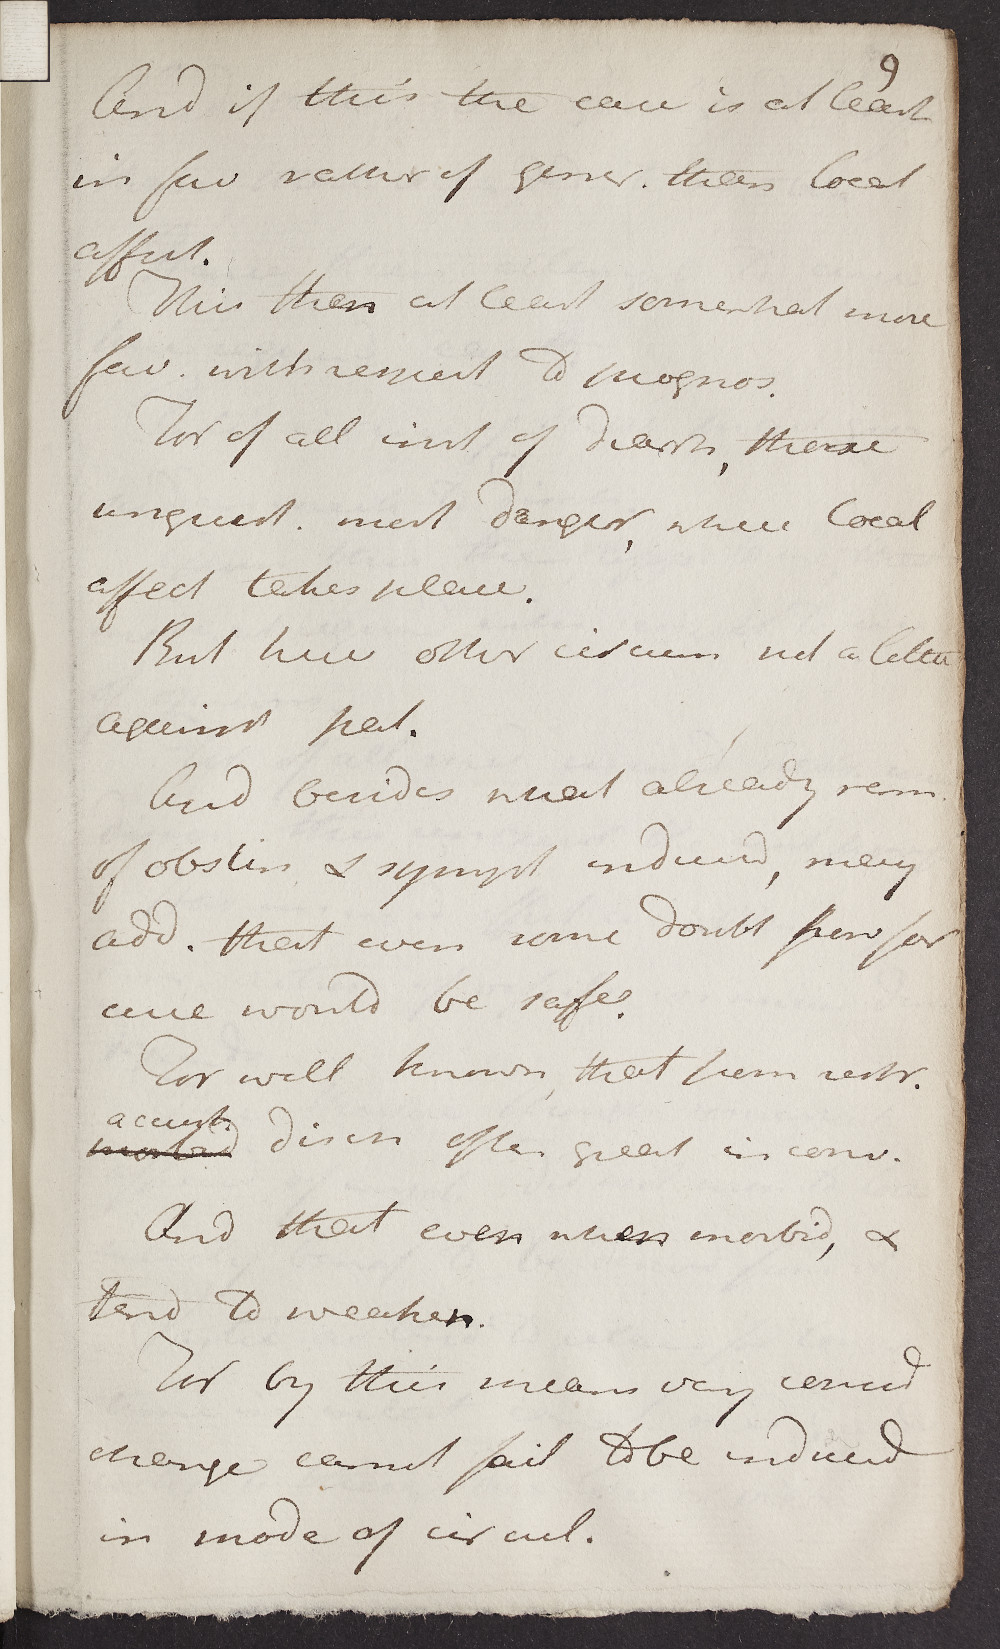 9
And if this the case is at least
in fav rather of gener. than local
affect.
This then at least somewhat more
fav. with respect to prognos.
For of all inst of diarrh, these
unquest. most danger, where local
affect takes place.
But here other circum not a little
against pat.
And besides what already rem.
of obstin & sympt induced, may
add. that even some doubt how far
cure would be safe.
For well known, that supp restr.
accust.
morbid disch often great in conv.
And that even when morbid, &
tend to weaken.
For by this means very consid
change cannot fail to be induced
in mode of circul.